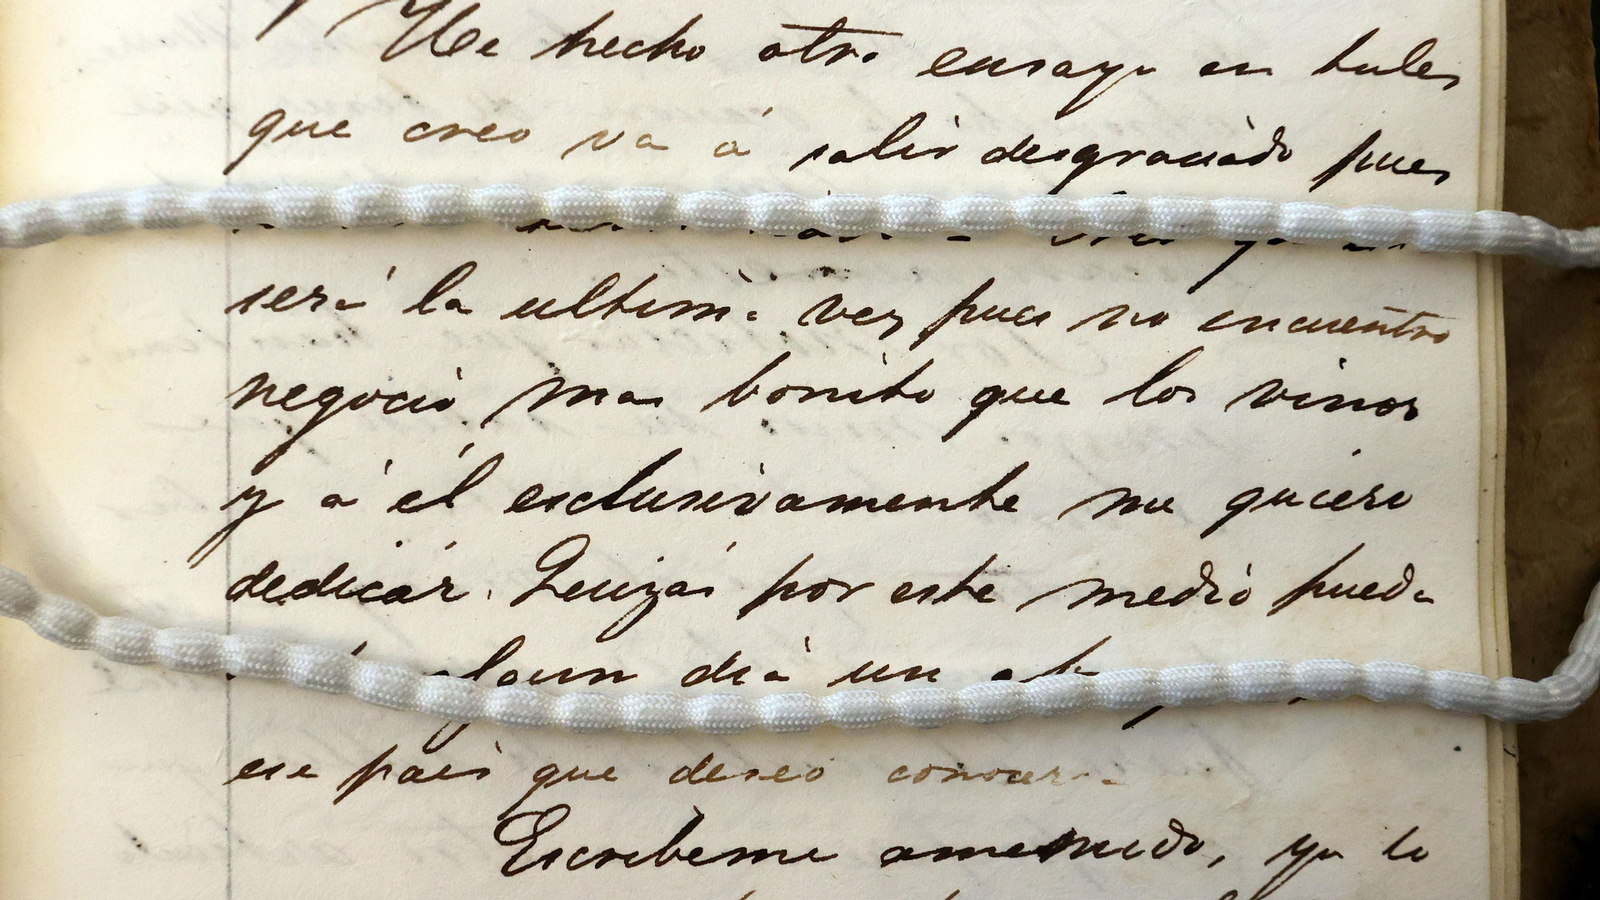 He hecho otro ensayo en tules
que creo va á salir desgraciado pues
será la ultima vez pues no encuentro
negocio mas bonito que los vinos
y á él esclusivamente me quiero
dedicár. Quizás por este medio pueda
algun dia un
ese pais que deseo conocer
Escribeme amenudo, yo lo